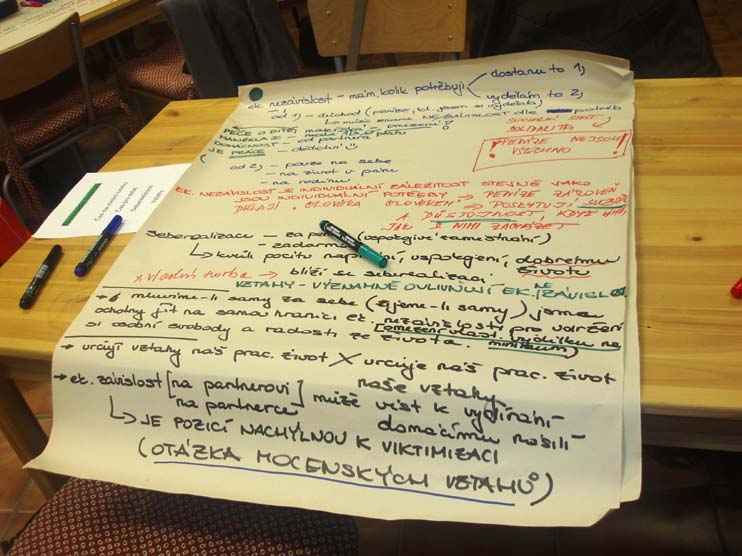 ek. nezávislost - mám, kolik potřebuji
dostanu to 1,
vydělám to 2,
od 1) - důchod (peníze, kt. jsem si vydělala)
může znamenat NEZÁVISLOST dle potřeb
PÉČE O DÍTĚ
MANŽELA
DOMÁCNOST
JE PRÁCE
mateřská
- od partnera
- dědictví
SOCIÁLNÍ STÁT
SOLIDARITA
! PENÍZE NEJSOU VŠECHNO !
od 2) - pouze na sebe
- na život v páru
- na rodinu
EK. NEZÁVISLOST JE INDIVIDUÁLNÍ ZÁLEŽITOST STEJNĚ JAKO
JSOU INDIVIDUÁLNÍ POTŘEBY → PENÍZE ZÁROVEŇ
DĚLAJÍ ČLOVĚKA ČLOVĚKEM → POSKYTUJÍ SVOBODU
A DŮSTOJNOST, KDYŽ UMÍM,
JAK S NIMI ZACHÁZET
seberealizace - za peníze (uspokojivé zaměstnání)
- zadarmo
kvůli pocitu naplnění, uspokojení, dobrému životu
x vlastní tvorba → blíží se seberealizaci
VZTAHY - VÝZNAMNĚ OVLIVŇUJÍ EK. NEZÁVISLOST
mluvíme-li samy za sebe (žijeme-li samy) jsme
ochotny jít na samou hranici ek. nezávislosti pro udržení
si osobní svobody a radosti ze života. [omezení vlast. výdělku na minimum]
→ určují vztahy náš prac. život X určuje náš prac. život
naše vztahy
→ ek. závislost [na partnerovi na partnerce] může vést k vydírání
domácímu násilí
JE POZICÍ NÁCHYLNOU K VIKTIMIZACI
(OTÁZKA MOCENSKÝCH VZTAHŮ)